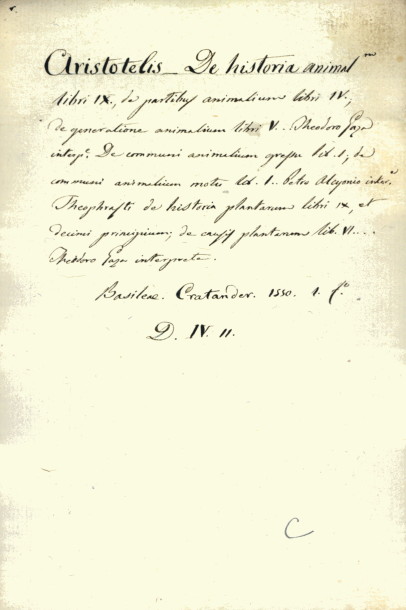 Aristotelis _ De historia animalᵐ
libri IX., de partibus animalium libri IV.,
de generatione animalium libri V.. Theodoro Gaza
intepᵉ. De communi animalium gressu lib. 1; de
communi animalium motu lib. 1.. Petro Alcyonio
Theophrasti de historia plantarum libri ix, et
decimi principium; de causis plantarum lib. VI...
Theodoro Gaza interprete.
Basileæ. Cratander. 1550. 1. fº.
D. IV. 11.
C